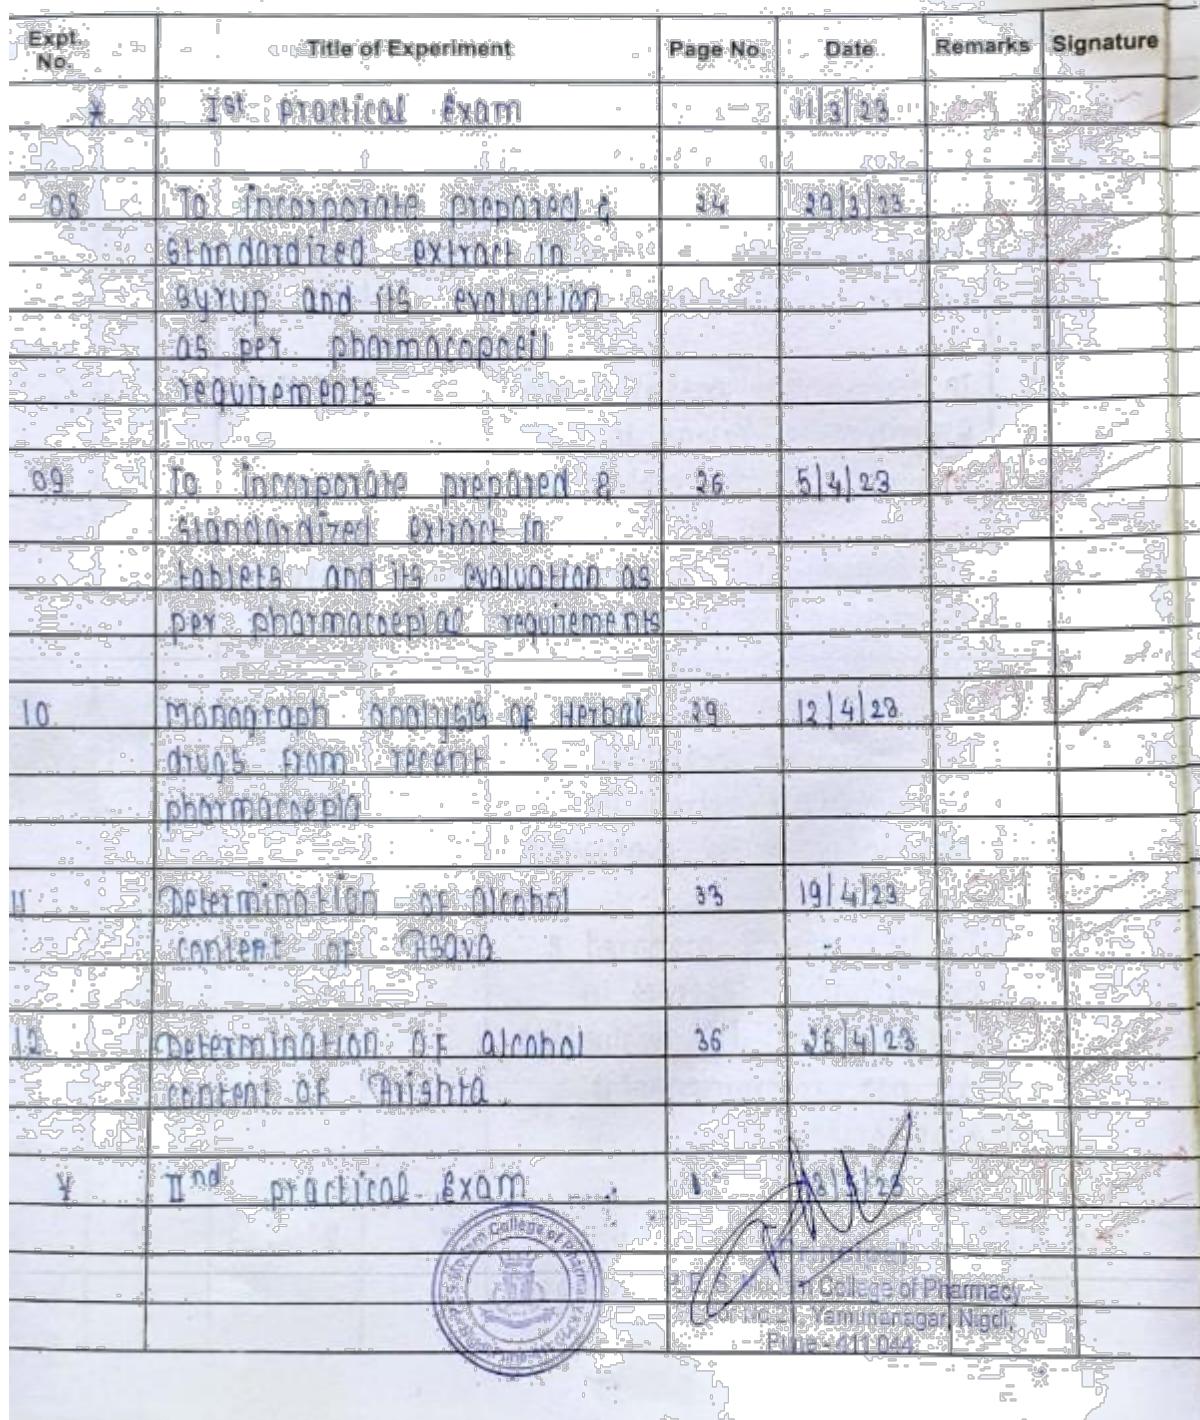 Expt. No. Title of Experiment Page No. Date Remarks Signature
* Ist Practical Exam 11/3/23
08 To incorporate prepared & 24 29/3/23
standardized extract in
syrup and its evaluation
as per pharmacopoeil
requirements
09 To incorporate prepared & 26 5/4/23
standardized extract in
tablets and its evaluation as
per pharmacoepial requirements
10 Monograph analysis of Herbal 29 12/4/23
drugs from recent
pharmacoepia
11 Determination of alcohol 33 19/4/23
content of Asava
12 Determination of alcohol 36 26/4/23
content of Arishta.
* IInd practical Exam
College of Pharmacy
College of Pharmacy
Yamunanagar, Nigdi,
Pune - 411 044